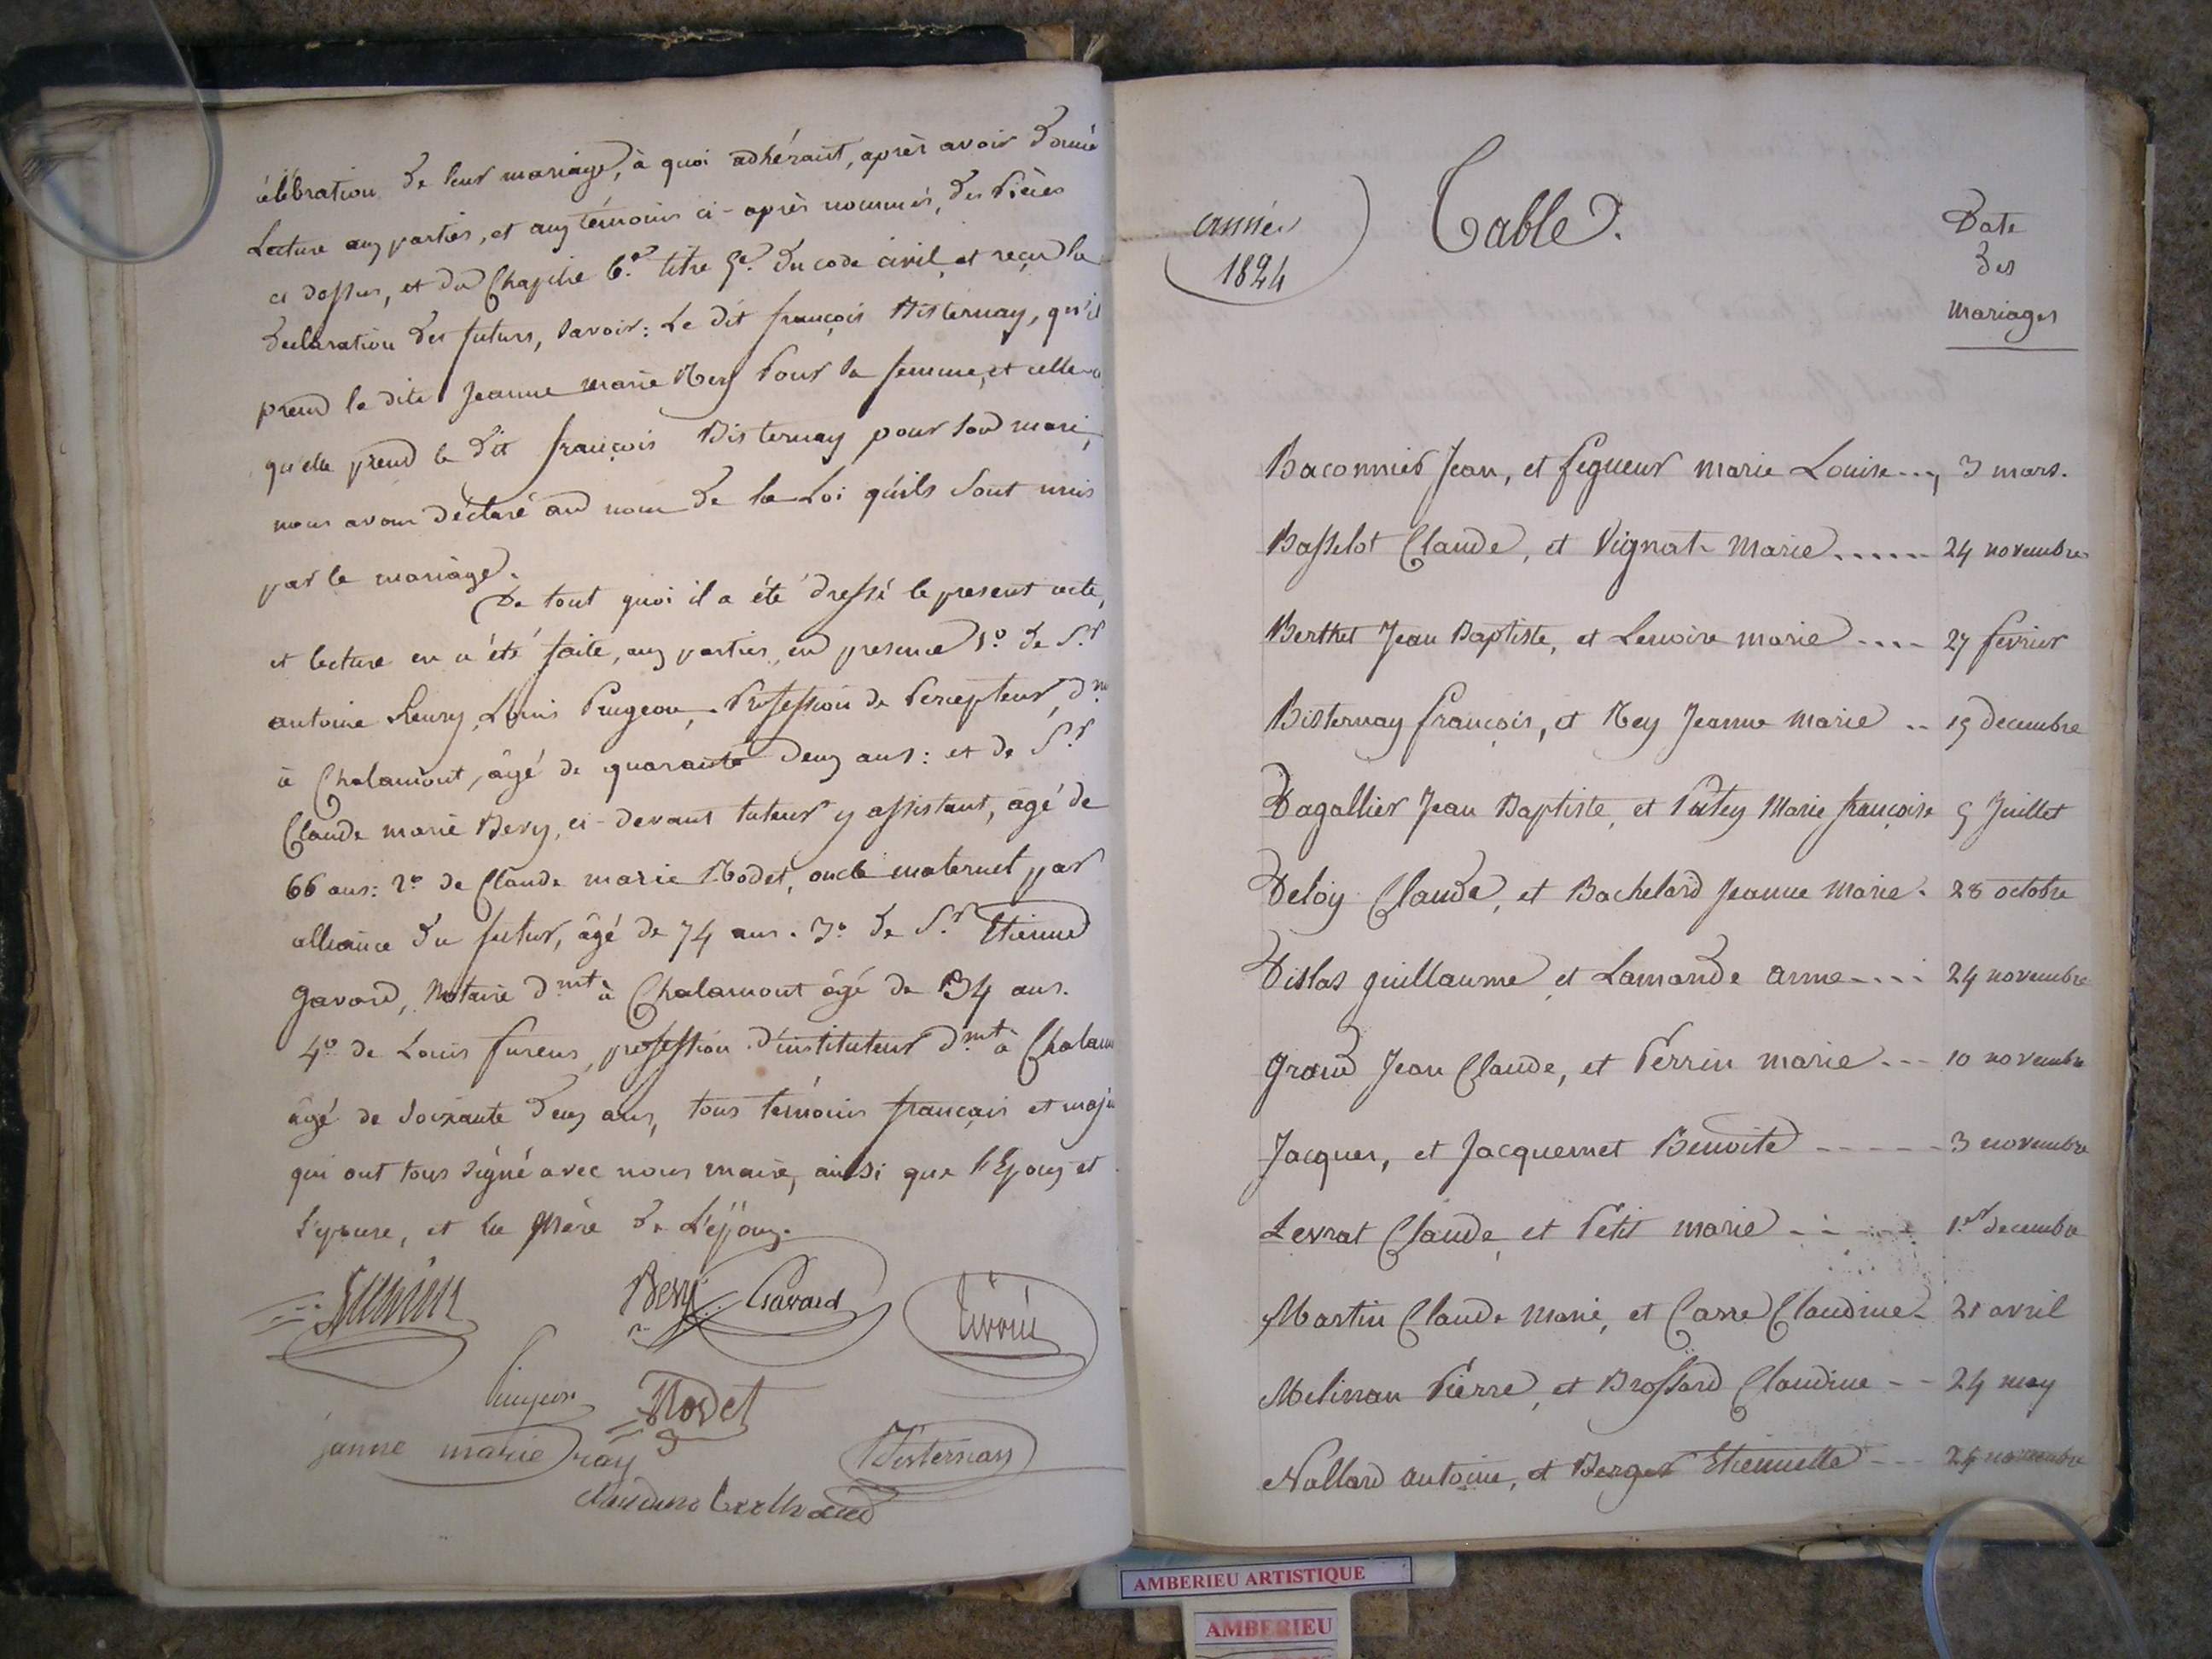 célébration de leur mariage, à quoi adhérant, après avoir donné
Lecture aux parties, et aux témoins ci-après nommés, des Pièces
ci dessus, et du Chapitre 6.e titre 5.e du code civil, et reçu la
declaration des futurs, Savoir: Le dit françois Bisternay, qu'il
prend la dite Jeanne marie Rey Pour Sa femme, et celle-ci
qu'elle prend le dit françois Bisternay pour Son mari,
nous avons déclaré au nom de la Loi qu'ils Sont unis
par le mariage.
De tout quoi il a été dressé le present acte,
et lecture en a été faite, aux parties, en presence 1.o de S.r
antoine fleury, Louis Pingeon, Profession de Percepteur, d.mt
à Chalamont, âgé de quarante deux ans: et de S.r
Claude marie Bevy, ci-devant tuteur y assistant, âgé de
66 ans: 2.o de Claude marie Rodet, oncle maternel par
alliance du futur, âgé de 74 ans. 3.o de S.r Etienne
Gavard, Notaire d.mt à Chalamont âgé de 34 ans.
4.o de Louis , profession d'instituteur d.mt à Chalam
âgé de Soixante deux ans, tous témoins français et maj
qui ont tous Signé avec nous maire, ainsi que l'Epoux et
L'épouse, et la Mère de L'époux.
Bevy Gavard
Pingeon Rodet
janne marie ray Bisternay
année 1824
Table.
Date
des
Mariages
Baconnier Jean, et fegueur marie Louise..., 3 mars.
Basselot Claude, et Vignat Marie...... 24 novembre
Berthet Jean Baptiste, et Lenoire marie.... 27 fevrier
Bisternay françois, et Rey Jeanne Marie .. 15 decembre
Dagallier Jean Baptiste, et Putey Marie françoise 5 Juillet
Deloy Claude, et Bachelard Jeanne Marie. 28 octobre
Dislas guillaume, et Lamande anne.... 24 novembre
Grand Jean Claude, et Perrin marie--- 10 novembre
Jacques, et Jacquemet Benoite ----- 3 novembre
Levrat Claude, et Petit marie ----- 1.er decembre
Martin Claude Marie, et Carre Claudine- 21 avril
Melinan Pierre, et Brossard Claudine -- 24 may
Nallard antoine, et Berger Etiennette --- 24 novembre
AMBERIEU ARTISTIQUE
AMBERIEU